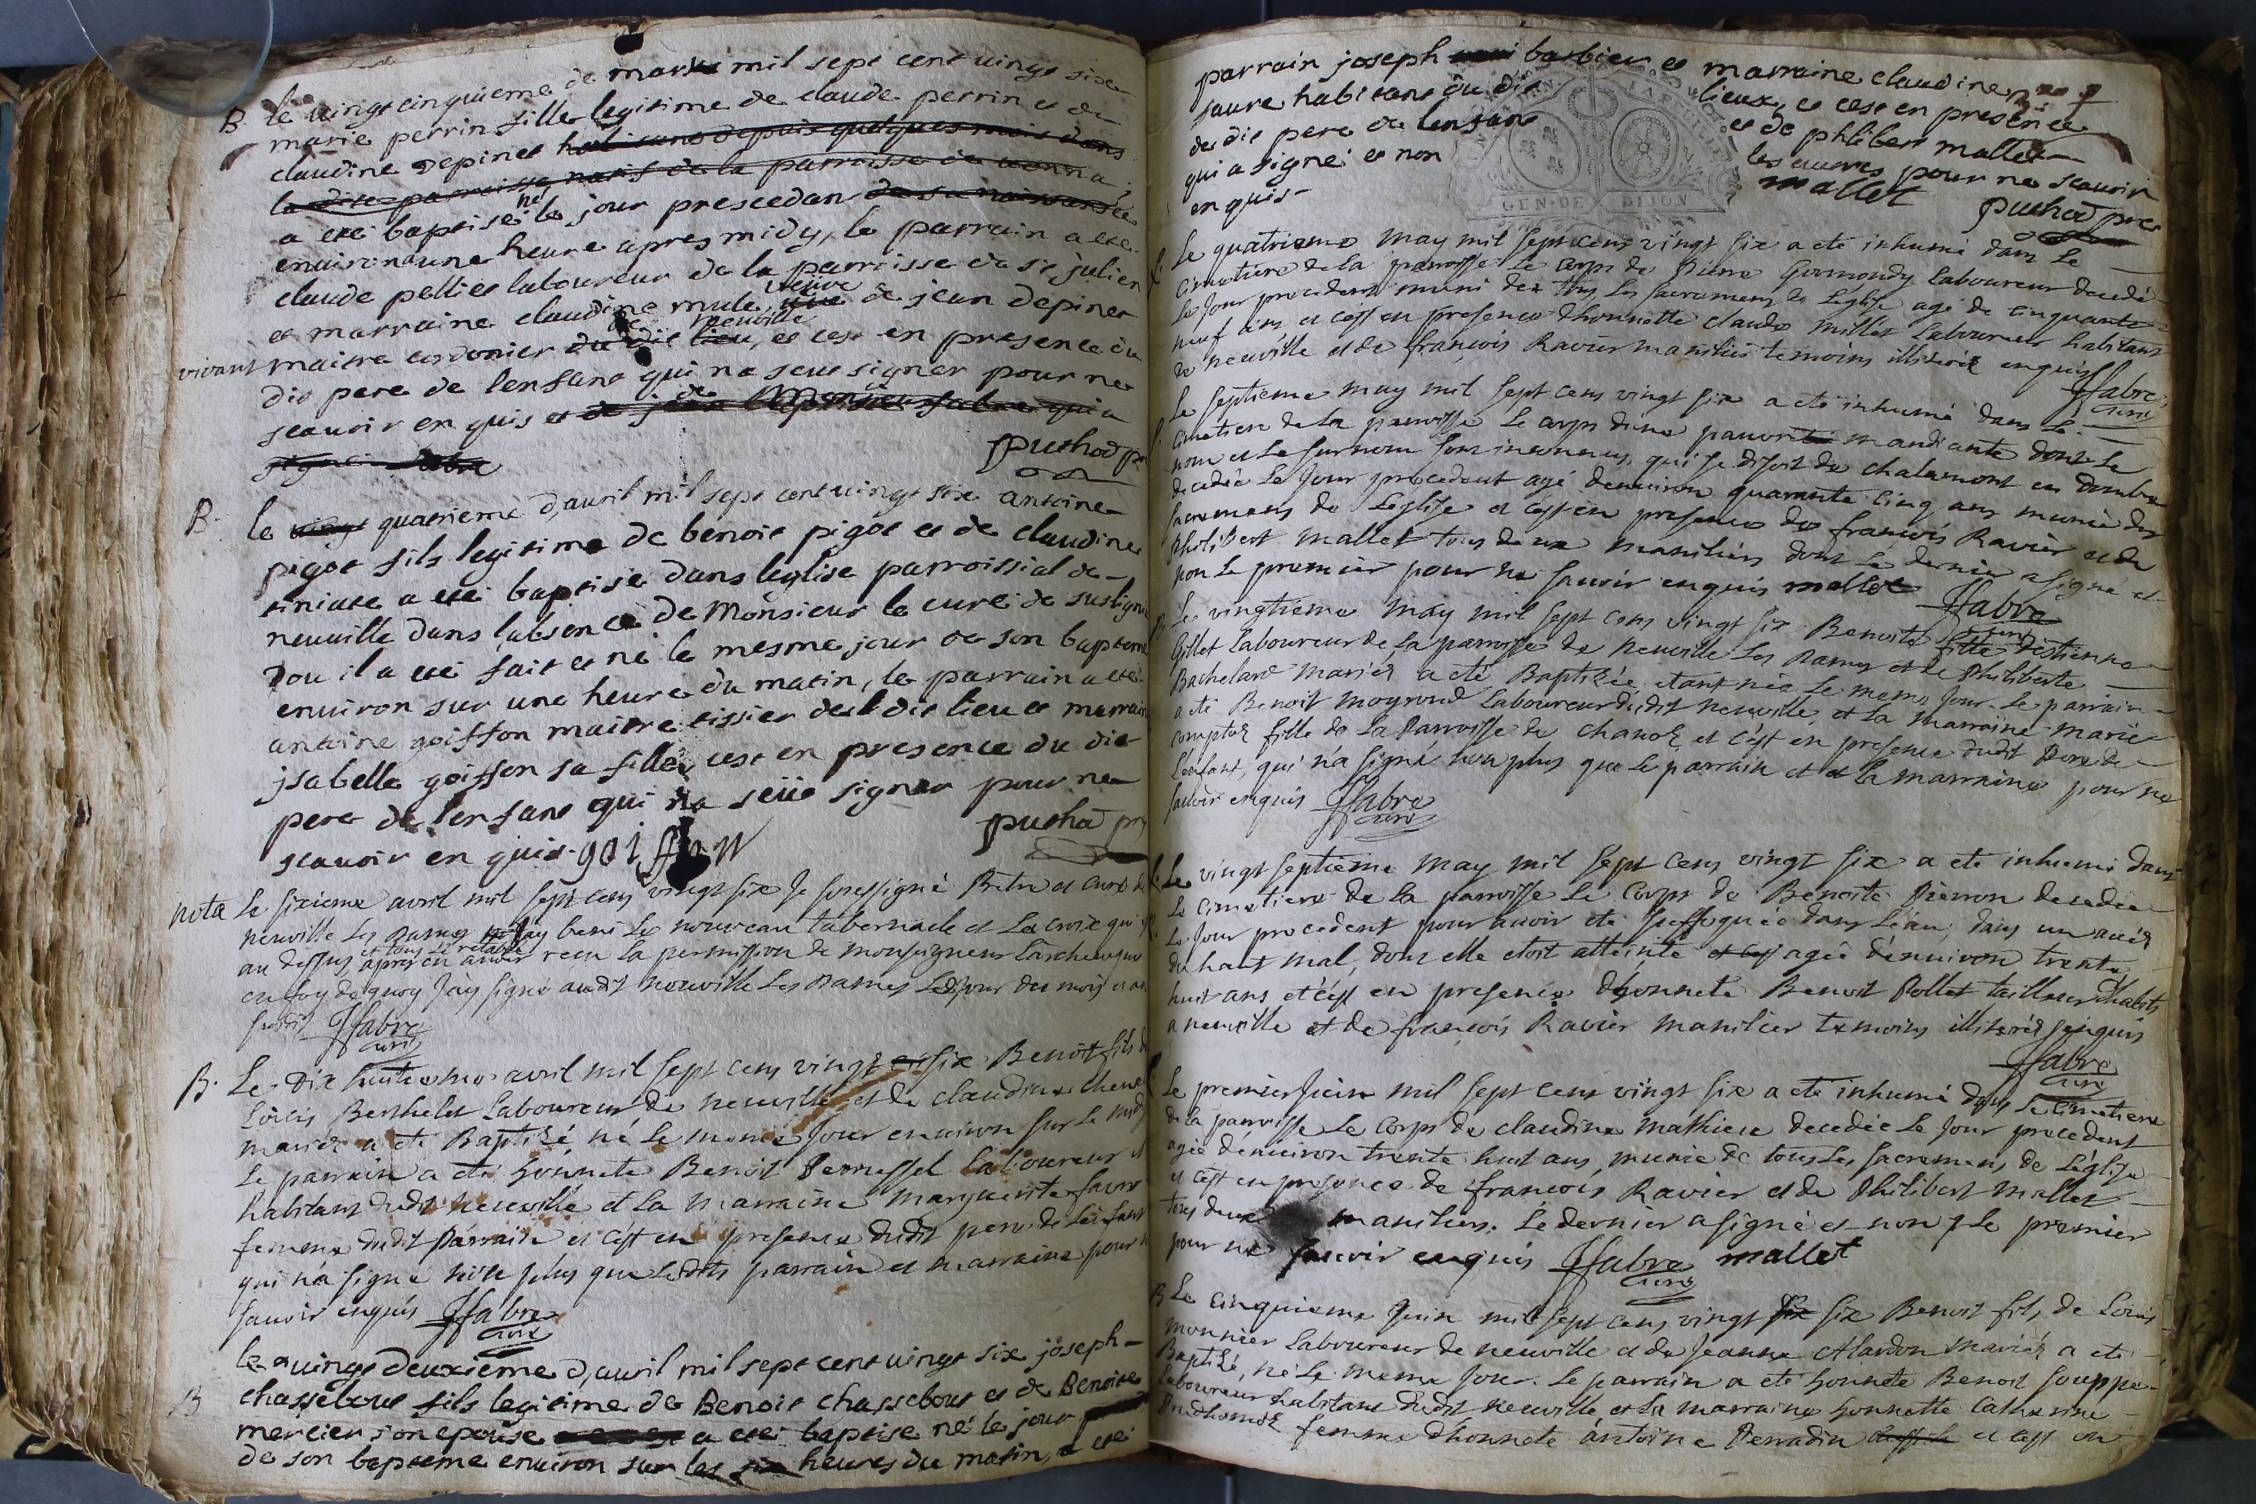 B. le vingt cinquieme de mars mil sept cent vingt six
marie perrin fille legitime de claude perrin et de
claudine depiner habitans depuis quelques mois dans
la dite parroisse natifs de la parroisse de
a eté baptisé né le jour prescedan de sa naissance
environ a une heure apres midy, le parrain a eté
claude pellier laboureur de la parroisse de st julien
et marraine claudine mule, veuve de jean depiner
vivant maitre cordonier du dit lieu, de neuville et cest en presence du
dit pere de lenfant qui na sceu signer pour ne
scavoir en quis et de Monsieur fabre qui a
signé fabre
puthod p
B. le vingt quatrieme d'avril mil sept cent vingt six antoine
pigot fils legitime de benoit pigot et de claudine
tiniare a eté baptisé dans leglise parroissial de
neuville dans l'absence de Monsieur le curé de susligna
dou il a eté fait et né le mesme jour de son bapteme
environ sur une heure du matin, le parrain a eté
antoine goiffon maitre tissier dudit lieu et marrain
jsabelle goiffon sa fille, cest en presence du dit
pere de lenfant qui na seüe signer pour ne
scavoir en quis. goiffon
puthod pr
nota Le sixieme avril mil sept cens vingt six Je soussigné Prêtre et curé de
neuville Les Dames ay beni Le nouveau tabernacle et La croix qui
au dessus et tous le retable apres en avoir receu la permission de monseigneur Larcheveque
en foy de quoy J'ay signé audit neuville Les Dames Le Jour du mois et an
susdit JFabre
curé
B. Le Dix huitieme avril mil sept cens vingt six Benoit fils de
Loüis Berthelet Laboureur de neuville et de claudine chene
mariez a eté Baptizé né Le meme Jour environ sur Le midy
Le parrain a eté honnete Benoit Perrussel Laboureur et
habitant dudit neuville et La marraine marguerite favre
femme dudit Parrain et c'est en presence dudit pere de L'enfant
qui n'a signé non plus que Ledits parrain et marraine pour n
savoir enquis JFabre
curé
B le vingt deuxieme d'avril mil sept cent vingt six joseph
chassebout fils legitime de Benoit chassebout et de Benoite
mercier son epouse a eté baptisé né le jour
de son bapteme environ sur les six heures du matin, a eté
parrain joseph barbier et marraine claudine
faure habitans du dit lieux, et cest en presence
du dit pere de lenfant et de philibert mallet
qui a signé et non les autres pour ne scavoir
enquis mallet
puthod pre
GEN. DE DIJON
Le quatrieme may mil sept cens vingt six a eté inhumé dans Le
cimetiere de la parroisse Le corps de Pierre Gormondy Laboureur decedé
Le Jour precedent muni de tous Les sacremens de L'eglise agé de cinquante
neuf ans et c'est en presence d'honnette claude millet Laboureur habitant
de neuville et de françois Ravier manilier temoins illiterés enquis
JFabre
curé
Le septieme may mil sept cens vingt six a eté inhumé dans Le
cimetiere de La parroisse Le corps d'une pauvre mandiante dont Le
nom et Le surnom sont inconnus, qui se disoit de chalamont en Dombe
decedée Le Jour precedent agé d'environ quarante cinq ans munie des
sacremens de L'eglise et c'est en presence de françois Ravier et de
Philibert Mallet tous deux maniliers dont Le dernier a signé et
non Le premier pour ne savoir enquis mallet
JFabre
curé
Le vingtieme may mil sept cens vingt six Benoite fille d'estienne
Gillet Laboureur de La parroisse de neuville Les Dames et de Philiberte
Bachelard mariez a eté Baptizée etant née Le meme Jour. Le parrain
a eté Benoit mogroud Laboureur dudit neuville, et La marraine marie
comptet fille de La Parroisse de chanoz et c'est en presence dudit Pere de
L'enfant, qui n'a signé non plus que Le parrain et La marraine pour ne
savoir enquis JFabre
curé
Le vingt septieme may mil sept cens vingt six a eté inhumé dans
Le cimetiere de la parroisse Le corps de Benoite Pierron decedée
Le Jour precedent pour avoir eté soffoquée dans L'eau, dans un accez
du haut mal, dont elle etoit atteinte agée d'environ trente
huit ans et c'est en presence d'honnete Benoit Pollet tailleur d'habits
a neuville et de françois Ravier manilier temoins illiterés enquis
JFabre
curé
Le premier Juin mil sept cens vingt six a eté inhumé dans Le cimetiere
de La parroisse Le corps de claudine mathieu decedée Le Jour precedent
agée d'environ trente huit ans, munie de tous Les sacremens de L'eglise
et c'est en presence de françois Ravier et de Philibert mallet
tous deux maniliers. Le dernier a signé et non Le premier
pour ne savoir enquis JFabre mallet
curé
B Le cinquieme Juin mil sept cens vingt six six Benoit fils de Loüis
monnier Laboureur de neuville et de Jeanne Alardon mariez a eté
Baptizé, né Le meme Jour. Le parrain a eté honnete Benoit souppe
Laboureur habitant dudit neuville et La marraine honnette Catherine
Prudhomet femme d'honnete antoine Perradin et c'est en